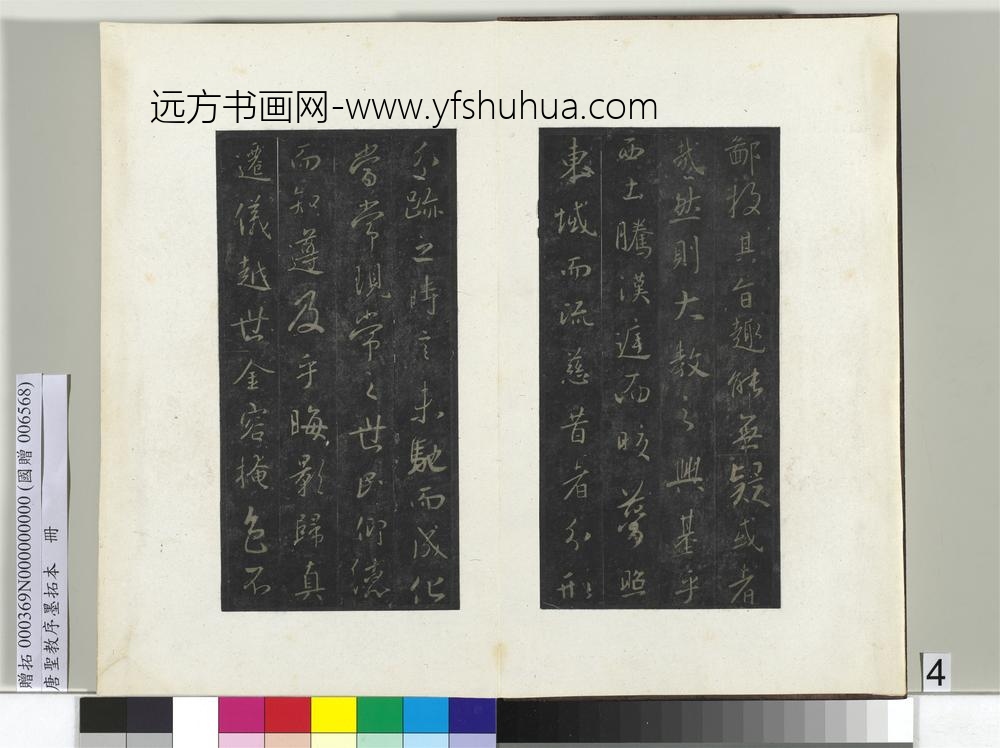 远方书画网-www.yfshuhua.com
鄙投其旨趣能無疑或者
哉然則大教之興基乎
西土騰漢庭而晈夢照
東域而流慈昔者分形
分跡之時言未馳而成化
當常現常之世民仰德
而知遵及乎晦影歸真
遷儀越世金容掩色不
贈拓 000369N000000000 (國贈 006568)
唐聖教序墨拓本 冊
4